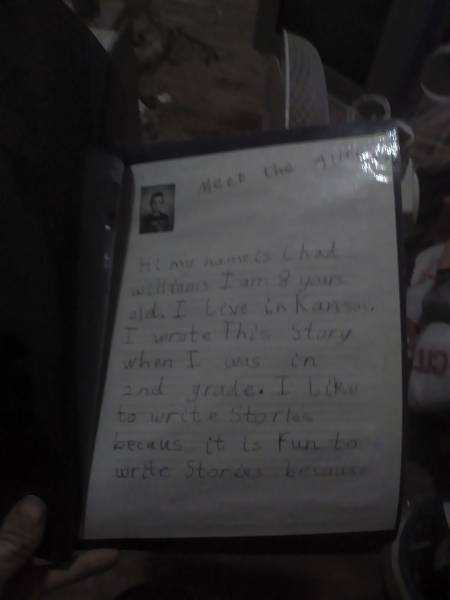 Meet the
Hi my name is Chad
williams I am 8 years
old. I Live in Kansas.
I wrote This Story
when I was in
2nd grade. I Like
to write Stories
becaus it is Fun to
write Stories because